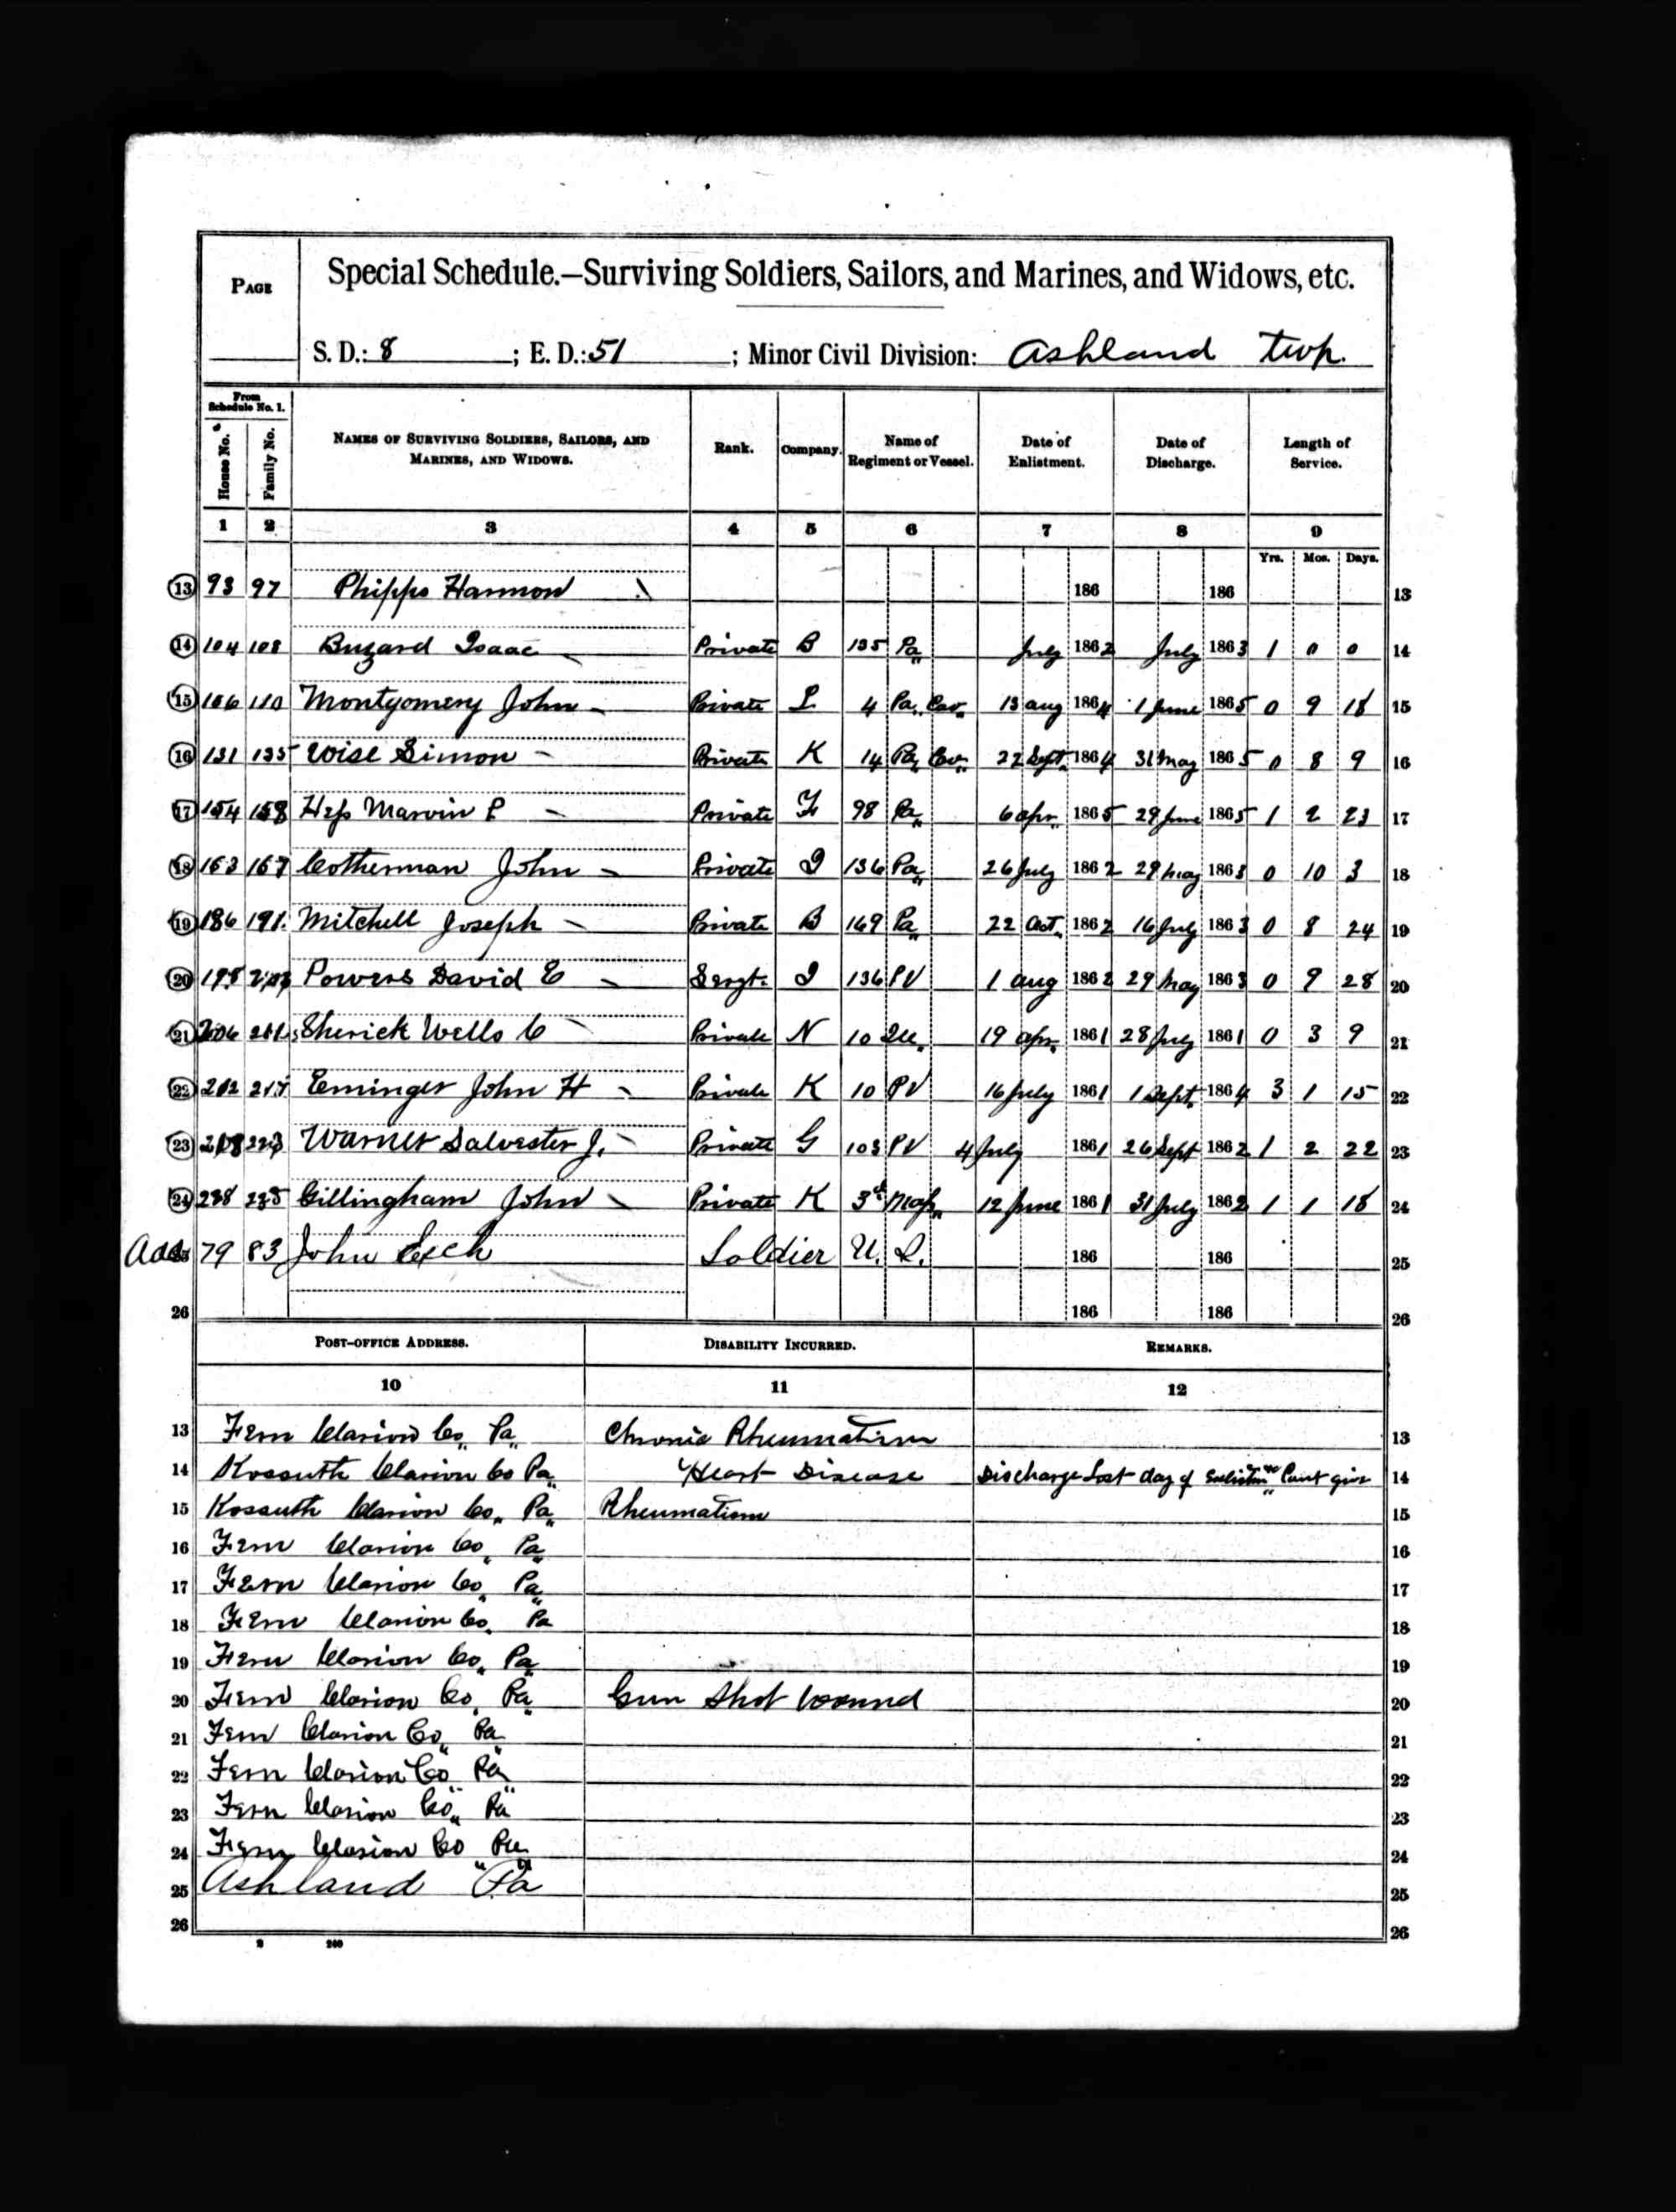 PAGE
Special Schedule.—Surviving Soldiers, Sailors, and Marines, and Widows, etc.
S. D.: 8 ; E. D.: 51 ; Minor Civil Division: Ashland Twp.
From Schedule No. 1.
House No. Family No. NAMES OF SURVIVING SOLDIERS, SAILORS, AND MARINES, AND WIDOWS. Rank. Company. Name of Regiment or Vessel. Date of Enlistment. Date of Discharge. Length of Service.
1 2 3 4 5 6 7 8 9
Yrs. Mos. Days.
13 93 97 Phipps Harmon 186 186 13
14 104 108 Buzard Isaac Private B 135 Pa July 1862 July 1863 1 0 0 14
15 106 110 Montgomery John Private L 4 Pa. Cav. 13 Aug 1864 1 June 1865 0 9 18 15
16 131 135 Wise Simon Private K 14 Pa. Cav. 22 Sept. 1864 31 May 1865 0 8 9 16
17 154 158 Marvin Private F 98 Pa 6 Apr. 1865 29 June 1865 1 2 23 17
18 163 167 Cotherman John Private I 136 Pa 26 July 1862 29 May 1863 0 10 3 18
19 186 191 Mitchell Joseph Private B 169 Pa 22 Oct. 1862 16 July 1863 0 8 24 19
20 198 Powers David E Sergt. I 136 PV 1 Aug 1862 29 May 1863 0 9 28 20
21 206 211 Sherick Wells C Private N 10 19 Apr. 1861 28 July 1861 0 3 9 21
22 212 217 Eminger John H Private K 10 PV 16 July 1861 1 Sept. 1864 3 1 15 22
23 218 223 Warner Salvester J. Private G 103 PV 4 July 1861 26 Sept 1862 1 2 22 23
24 238 John Gillingham Private K 3d 12 June 1861 31 July 1862 1 1 18 24
Add 79 83 John Soldier U. S. 186 186 25
26 186 186 26
POST-OFFICE ADDRESS. DISABILITY INCURRED. REMARKS.
10 11 12
13 Fern Clarion Co. Pa. Chronic Rheumatism 13
14 Kossuth Clarion Co Pa. Heart Disease Discharge Lost day of 14
15 Kossuth Clarion Co. Pa. Rheumatism 15
16 Fern Clarion Co. Pa 16
17 Fern Clarion Co. Pa 17
18 Fern Clarion Co. Pa 18
19 Fern Clarion Co. Pa 19
20 Fern Clarion Co. Pa Gun Shot wound 20
21 Fern Clarion Co. Pa 21
22 Fern Clarion Co Pa 22
23 Fern Clarion Co. Pa 23
24 Fern Clarion Co Pa 24
25 Ashland Pa 25
26 26